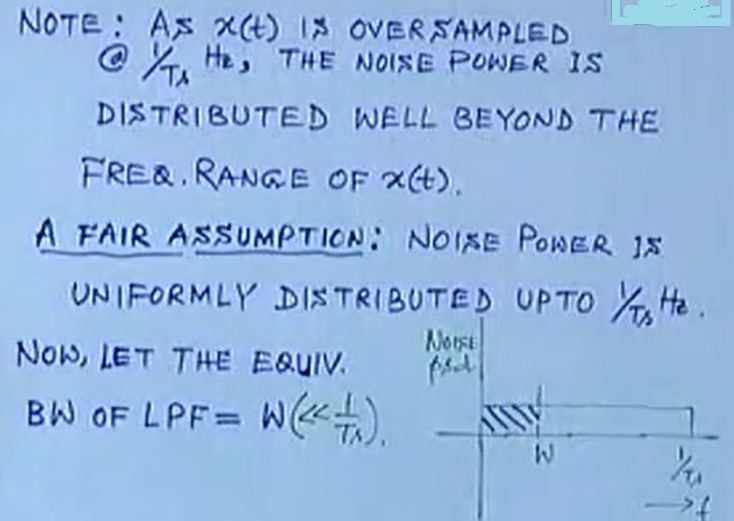 NOTE: AS x(t) IS OVERSAMPLED
@ 1/Ts Hz, THE NOISE POWER IS
DISTRIBUTED WELL BEYOND THE
FREQ. RANGE OF x(t).
A FAIR ASSUMPTION: NOISE POWER IS
UNIFORMLY DISTRIBUTED UPTO 1/Ts Hz.
NOW, LET THE EQUIV.
BW OF LPF = W(<< 1/Ts).
NOISE
psd
W
1/Ts
→ f